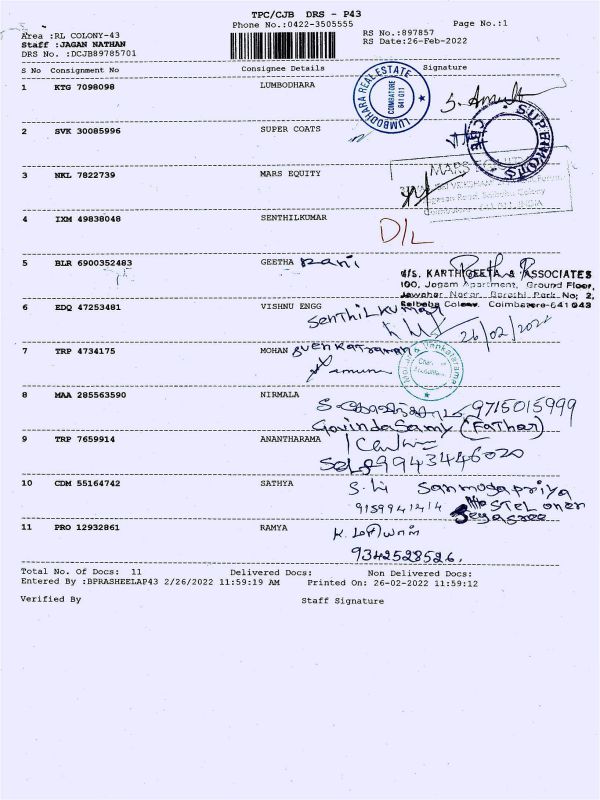 TPC/CJB DRS - P43
Phone No.:0422-3505555
Page No.:1
Area :RL COLONY-43
RS No.:897857
Staff :JAGAN NATHAN
RS Date:26-Feb-2022
DRS No. :DCJB89785701
S No Consignment No Consignee Details Signature
1 KTG 7098098 LUMBODHARA
LUMBODHARA REAL ESTATE
COIMBATORE
641 011
2 SVK 30085996 SUPER COATS
3 NKL 7822739 MARS EQUITY
4 IXM 49838048 SENTHILKUMAR
D/L
5 BLR 6900352483 GEETHA Rani
M/s. KARTHIGEETHA & ASSOCIATES
100, Jogam Apartment, Ground Floor,
Jawahar Nagar, Barathi Park No; 2,
Saibaba Colony, Coimbatore-641 043
6 EDQ 47253481 VISHNU ENGG
Senthilkumar
26/02/2022
7 TRP 4734175 MOHAN & Venkatraman
8 MAA 285563590 NIRMALA
9715015999
GovindaSamy (Father)
9 TRP 7659914 ANANTHARAMA
9943446020
10 CDM 55164742 SATHYA
Sanmugapriya
9159941414 Hostel oner
Jeyasree
11 PRO 12932861 RAMYA
9342528526.
Total No. Of Docs: 11 Delivered Docs: Non Delivered Docs:
Entered By :BPRASHEELAP43 2/26/2022 11:59:19 AM Printed On: 26-02-2022 11:59:12
Verified By Staff Signature